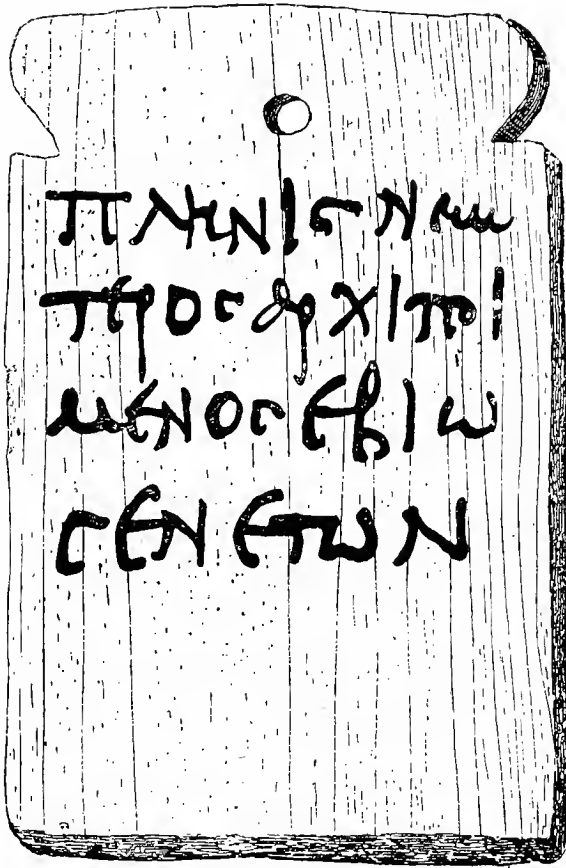 πληνις νεω
τερος αρχιποι
μενος εβιω
σεν ετων